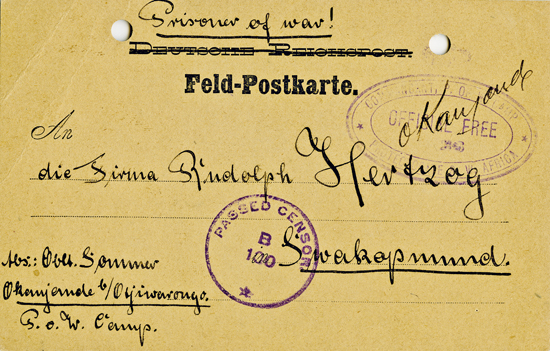 Prisoner of war!
Deutsche Reichspost.
Feld-Postkarte.
OFFICIAL FREE
Okanjande
An
die Firma Rudolph Hertzog
PASSED CENSOR
B
100
Swakopmund.
Abs.: Oblt. Sommer
Okanjande b/Otjiwarongo.
P. o. W. Camp.